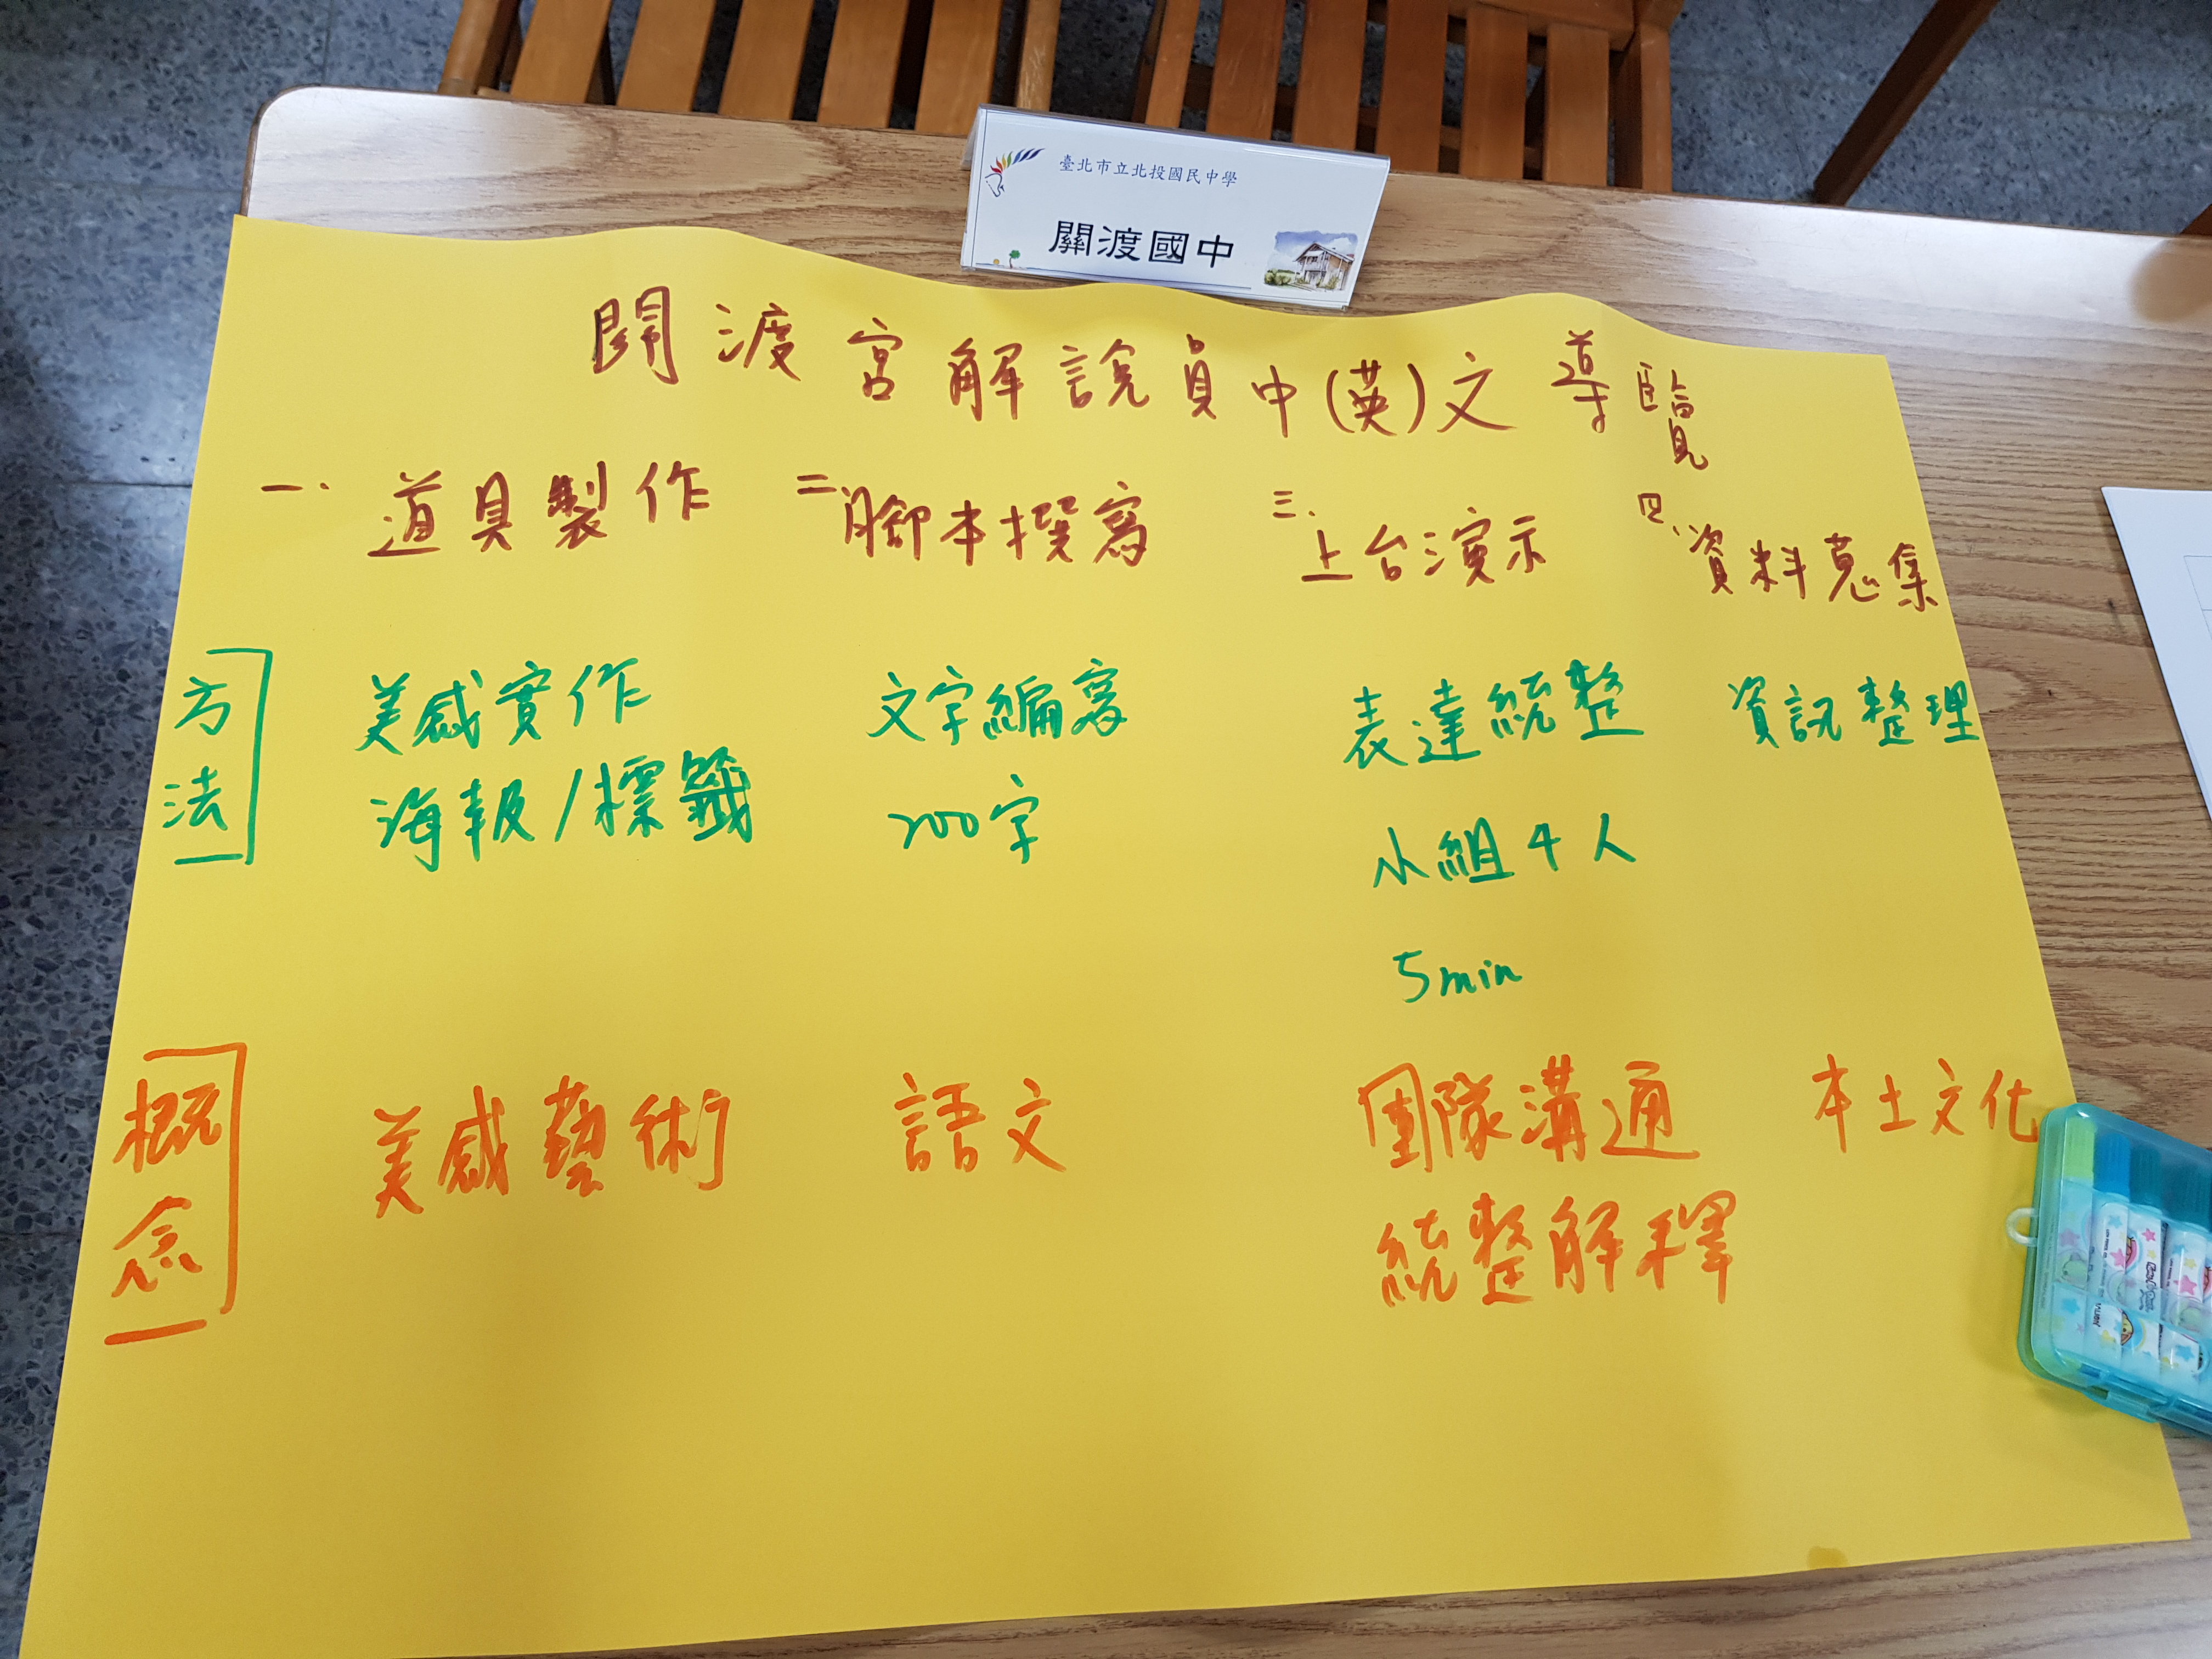 臺北市立北投國民中學
關渡國中
関渡宮解說員中(英)文導覽
一、道具製作 二、腳本撰寫 三、上台演示 四、資料蒐集
方法 美感實作 文字編寫 表達統整 資訊整理
海報/標籤 200字 小組4人
5min
概念 美感藝術 語文 團隊溝通 本土文化
統整解釋